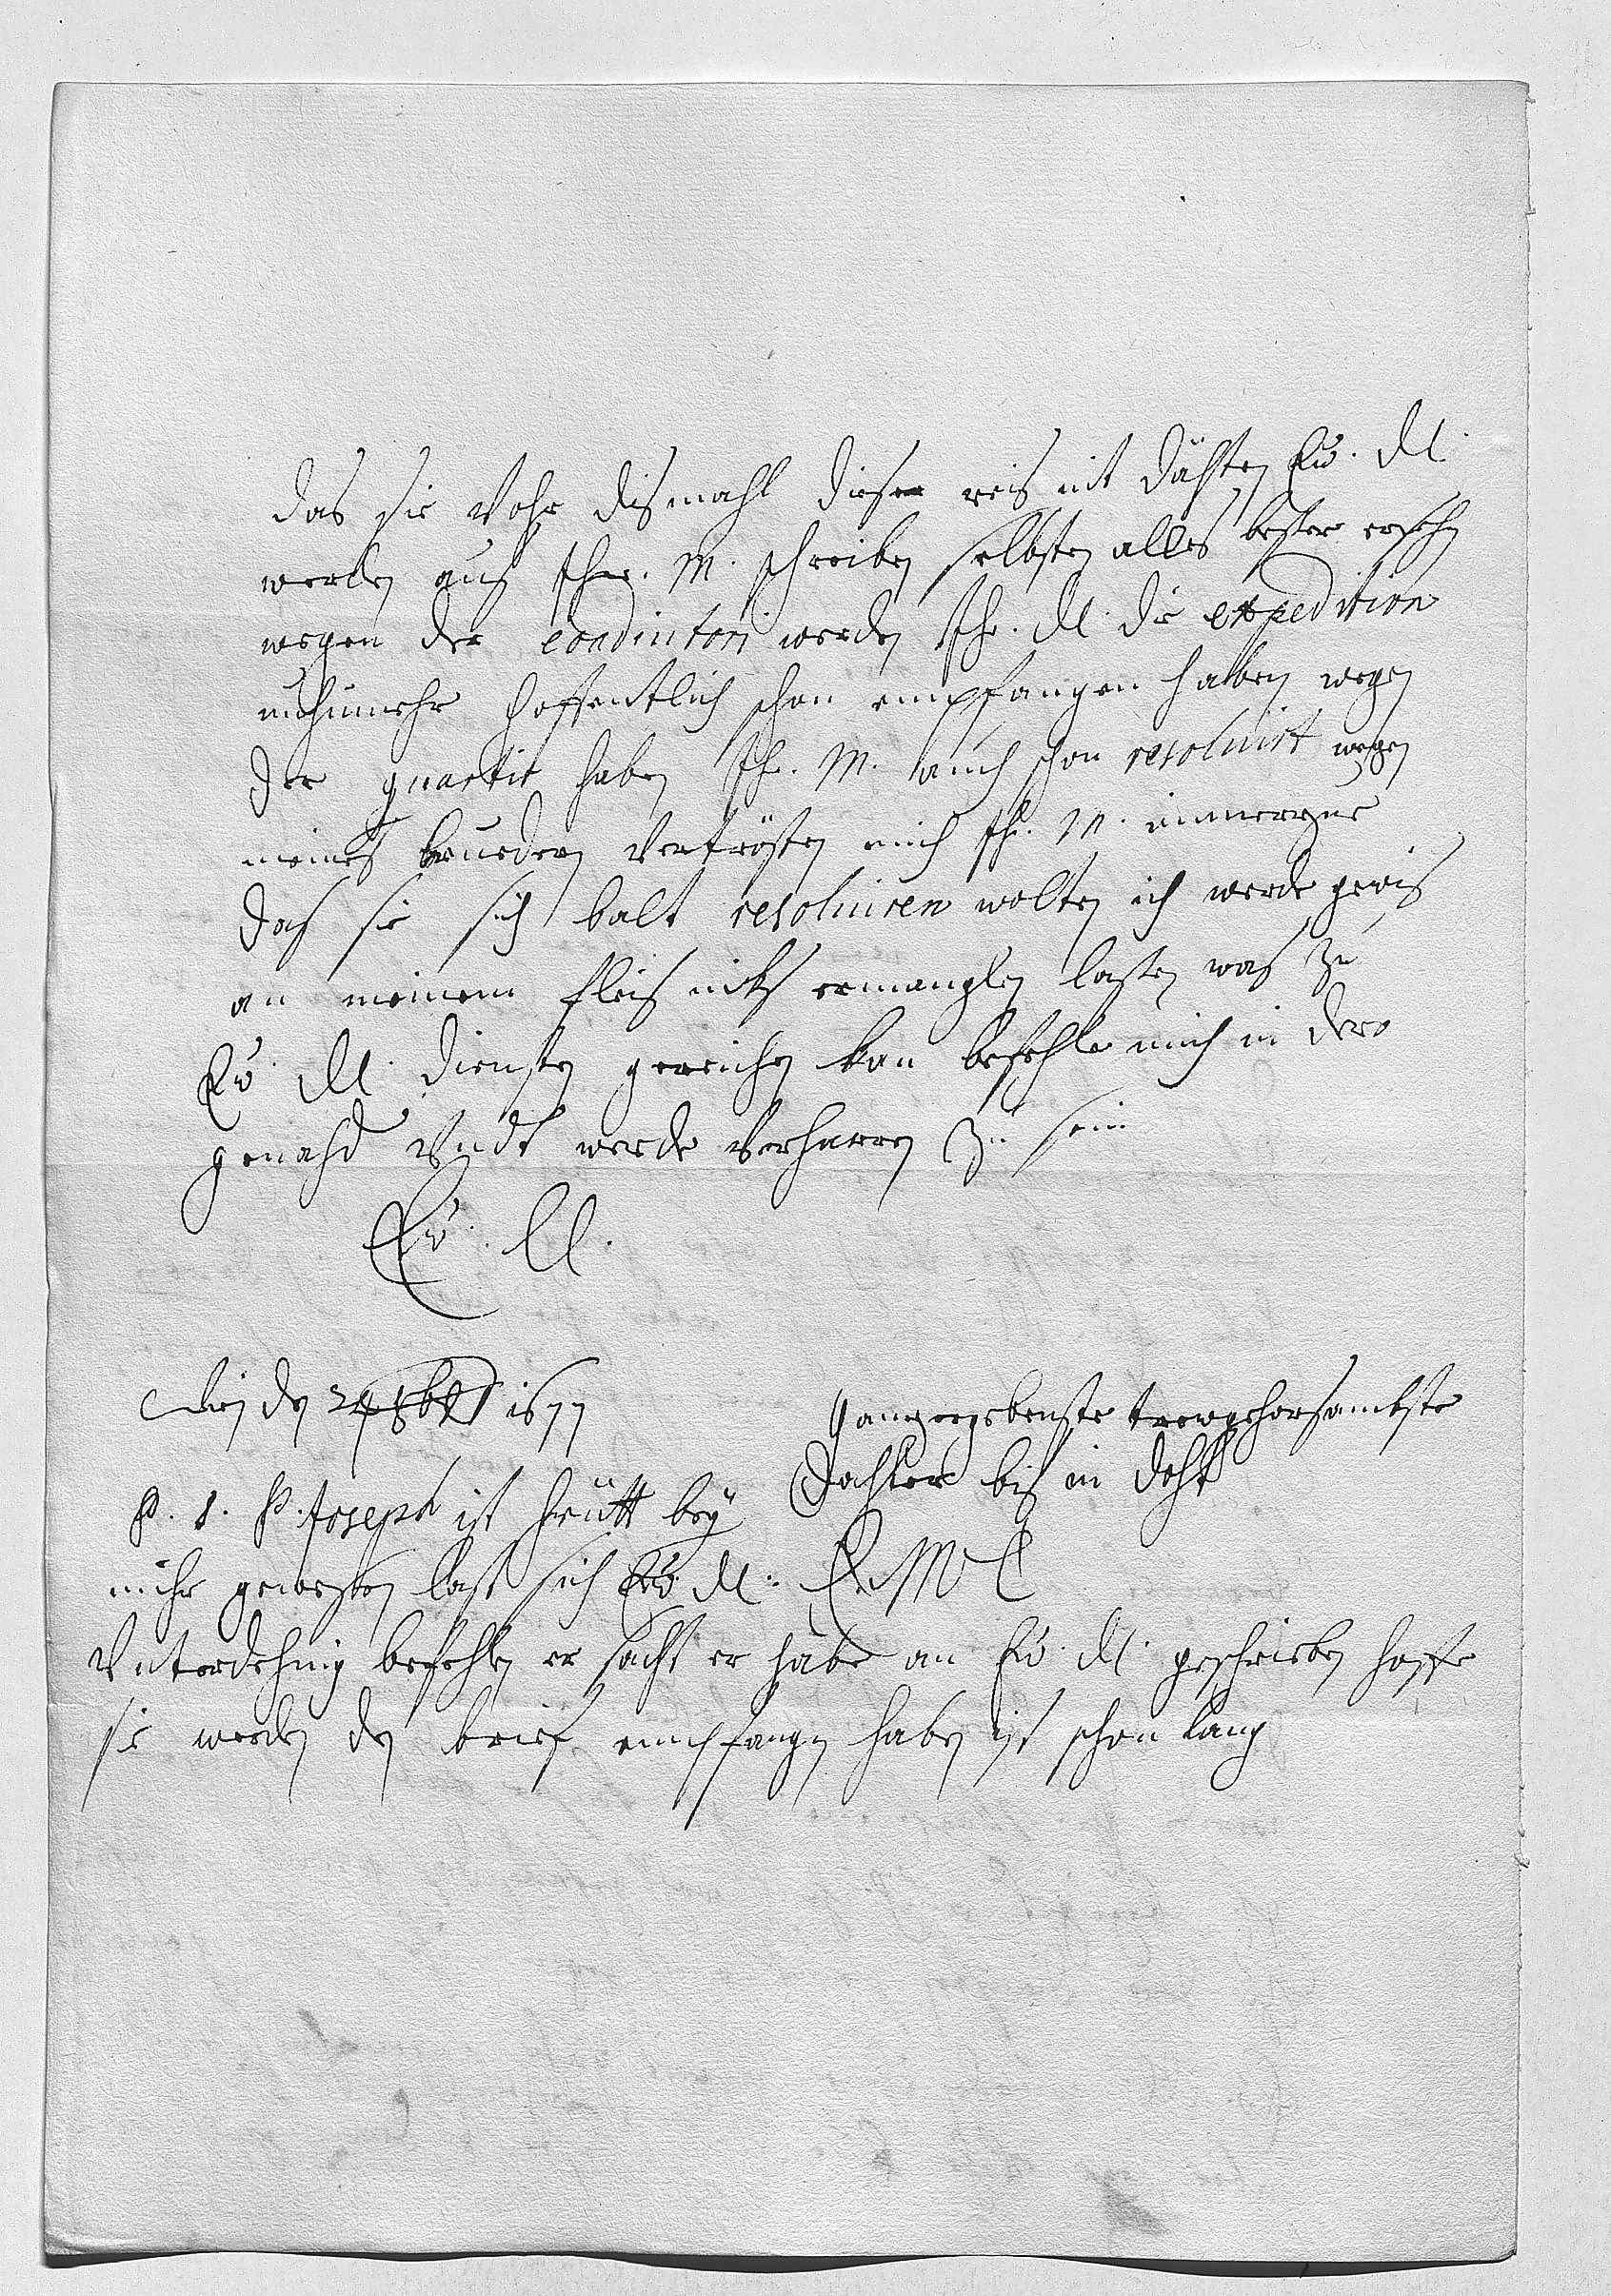 das sie Vohr dismahl dieser reis nit dähten Ew. M.
werden aus Ihr. M. schreiben selbsten alles bester ersehn
wegen der coadiutori werden Ihr. M. die expedition
nuhnmehr hoffentlich schon empfangen haben wegen
der quartir haben Ihr. M. auch schon resoluirt wegen
meines bruedern Vertrösten mich Ihr. M. immerzue
das sie sich balt resoluiren wolten ich werde gewis
an meinem fleis nichts ermanglen lasten was zu
Ew. M. diensten gereichen kan befehle mich in dero
genahd Undt werde Verharren zu sein
Ew. M.
Wien den 24 8bris 1677
ganzergebenste trewgehorsambste
dochter bis in doht
P. S. P. Joseph ist heutt bey
mihr gewesten last sich Ew. M.: E M
Unterdehnig befehlen er sacht er habe an Ew. M. geschrieben hoffe
sie werden den brief empfangen haben ist schon lang